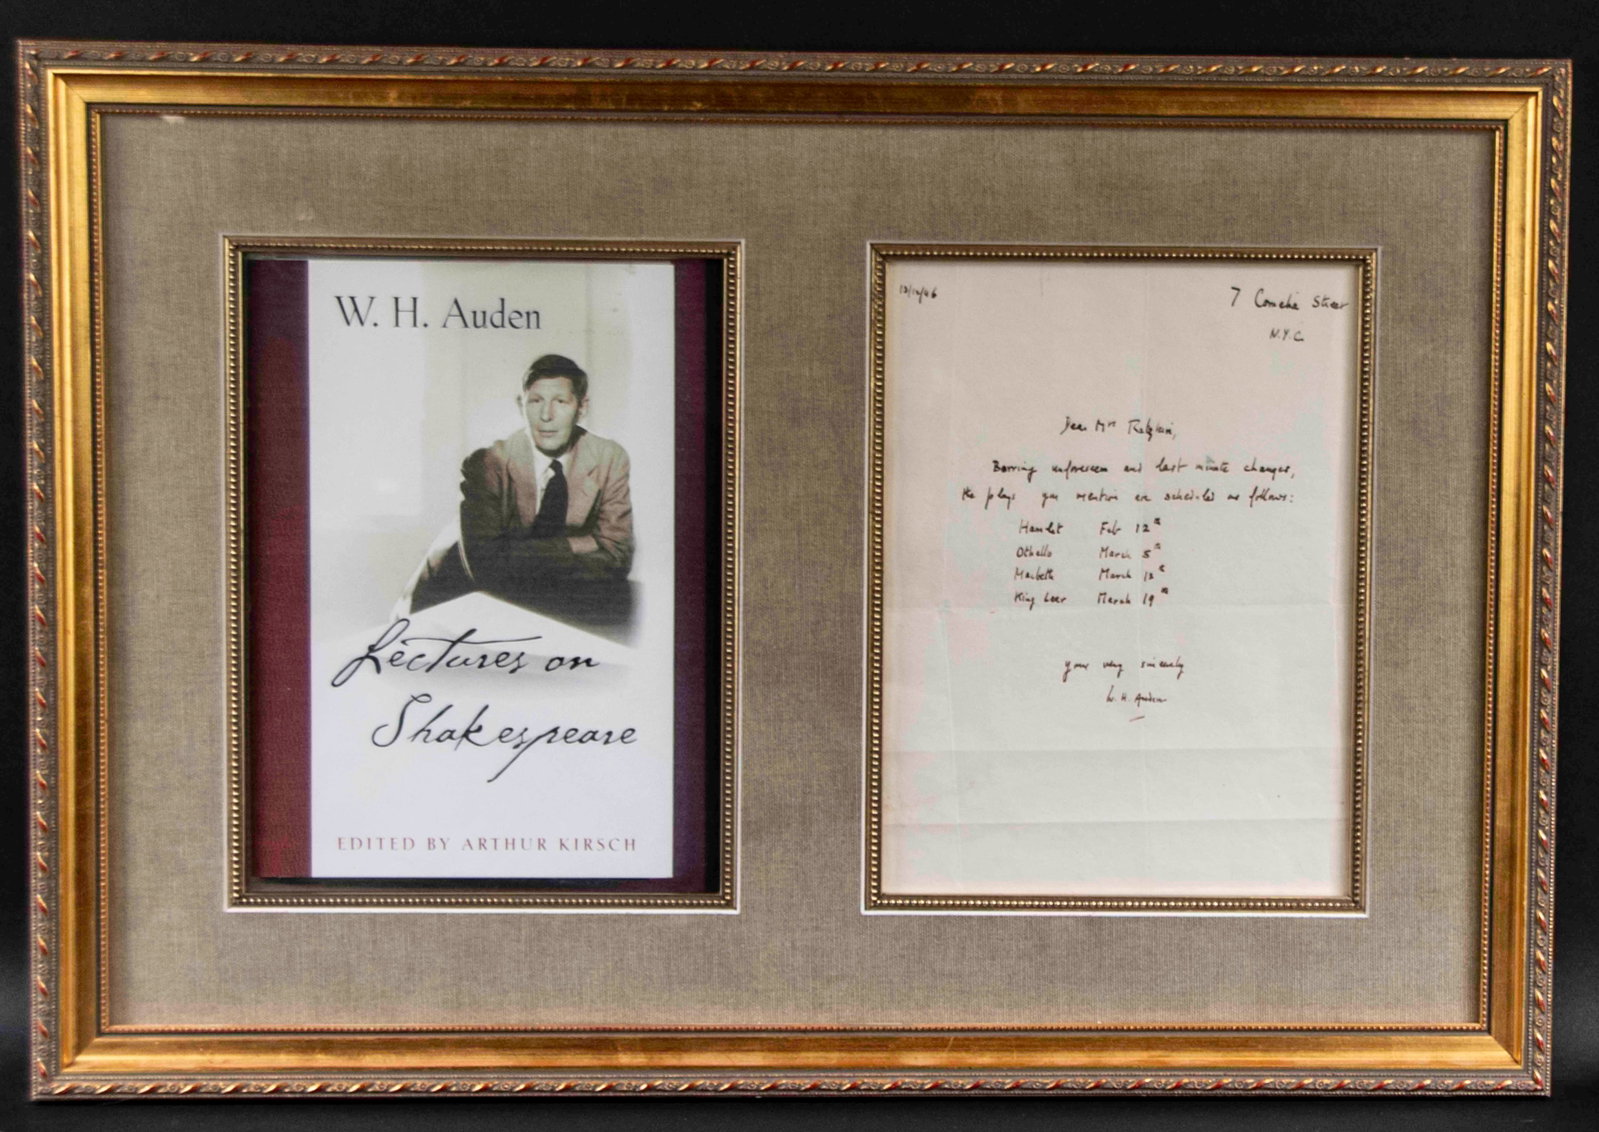 W. H. Auden
Lectures on
Shakespeare
EDITED BY ARTHUR KIRSCH
7 Cornelia Street
N.Y.C.
Dear Mrs
Barring unforeseen and last minute changes,
the plays you mention are scheduled as follows:
Hamlet Feb 12th
Othello March 5th
Macbeth March 12th
King Lear March 19th
yours very sincerely
W. H. Auden